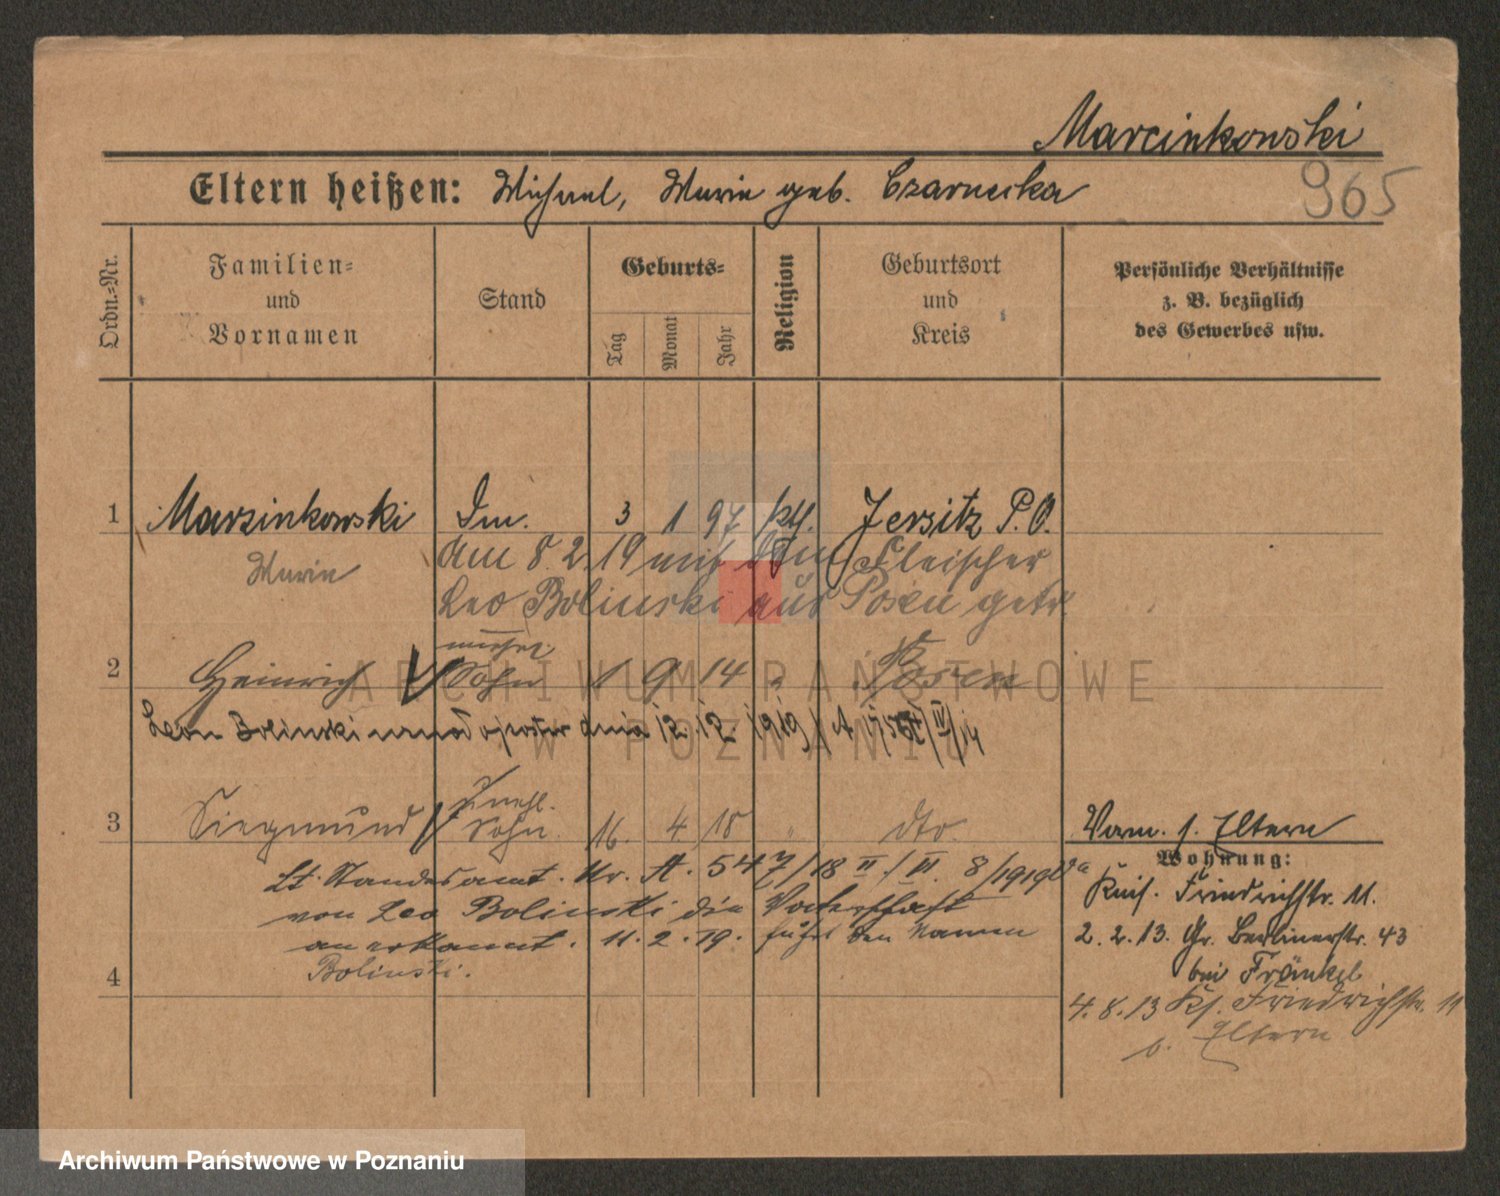 Marcinkowski
965
Eltern heißen: Michael, Marie geb. Czarnecka
Ordn.=Nr.
Familien= und Vornamen
Stand
Geburts=
Tag
Monat
Jahr
Religion
Geburtsort und Kreis
Persönliche Verhältnisse z. B. bezüglich des Gewerbes usw.
1 Marzinkowski 3 1 97 kth. Jersitz P. O.
Marie
am 8. 2. 19 mit dem Fleischer
Leo Bolinski aus Posen getr.
unehel.
2 Heinrich Sohn 1 9 14 " Posen
Leon Bolinski dnia 12. 12. 1919
unehl.
3 Siegmund Sohn. 16. 4 18 " dto.
Lt. Standesamt. Nr. A. 547/18 II/VI. 8/1919
von Leo Bolinski die Vaterschaft
anerkannt. 11. 2. 19. führt den Namen
Bolinski.
4
Vorm. s. Eltern
Wohnung:
Friedrichstr. 11.
2. 2. 13. Gr. Berlinerstr. 43
bei Fränkel
4. 8. 13 Friedrichstr. 11
b. Eltern
ARCHIWUM PAŃSTWOWE
W POZNANIU
Archiwum Państwowe w Poznaniu